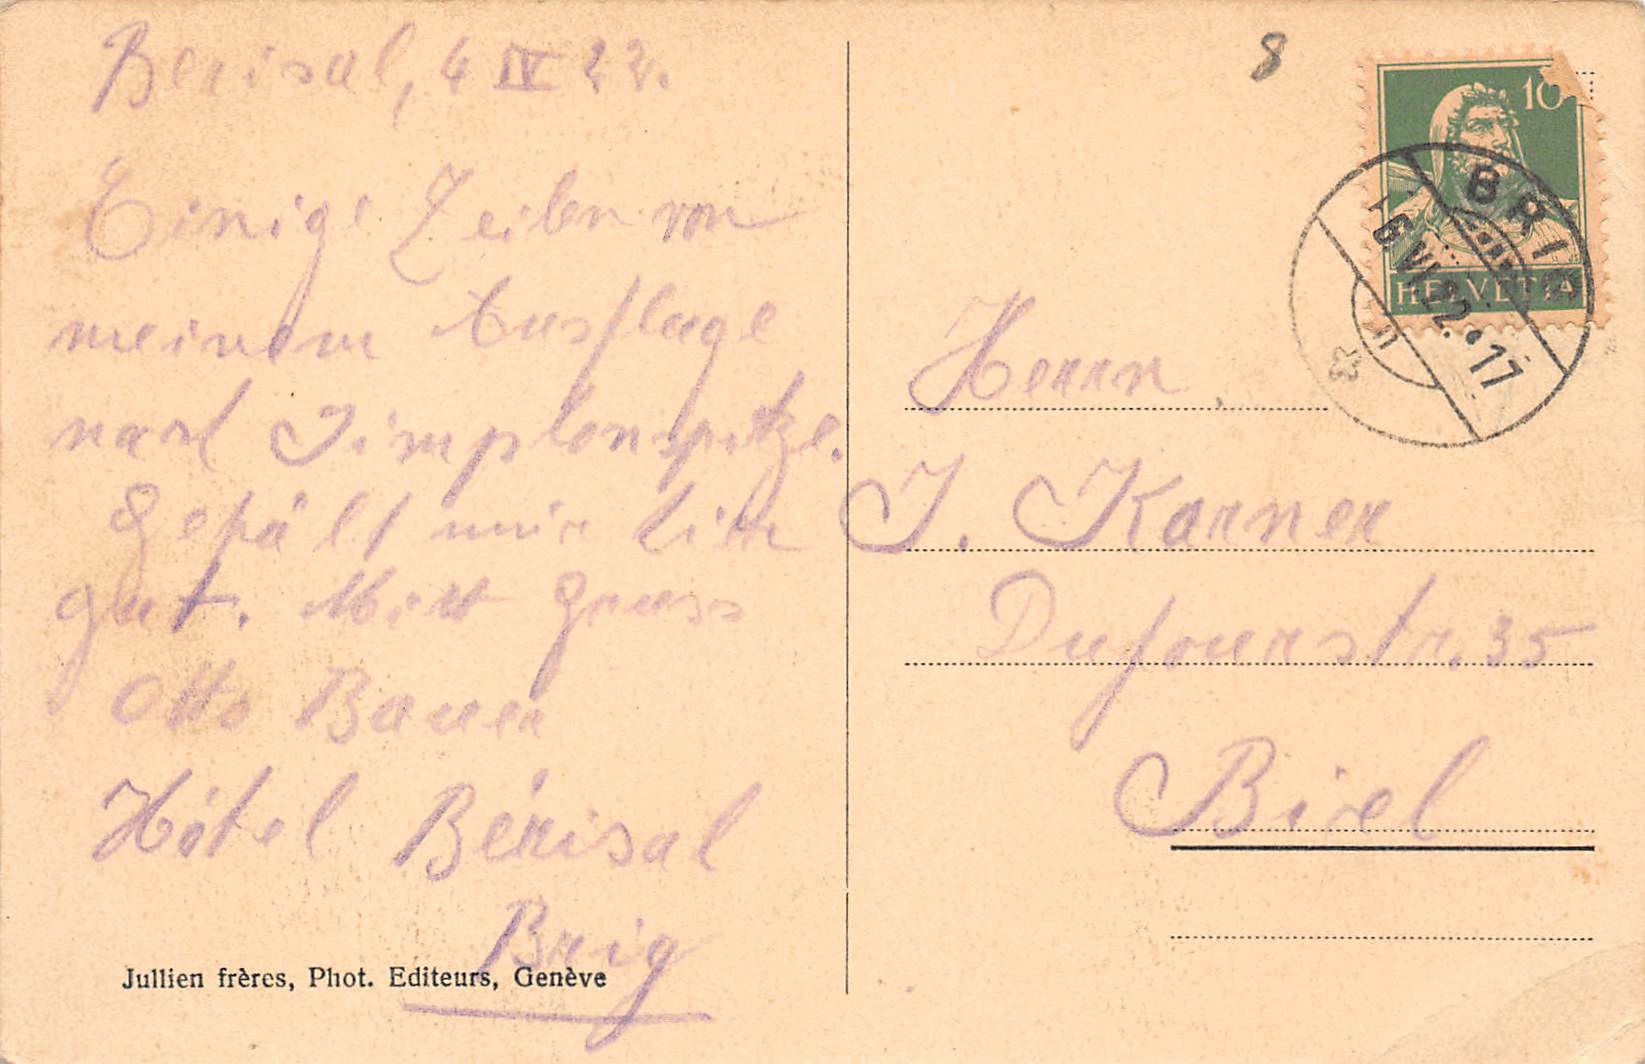 Berisal, 4 IV 22.
Einige Zeilen von
meinem Ausfluge
nach Simplonspitze.
Gefält mir hier
gut. Mitt Gruss
Otto Bauer
Hôtel Bérisal
Brig
Jullien frères, Phot. Editeurs, Genève
8
10
HELVETIA
BRIG
VI.22.•17
Herrn
J. Karner
Dufourstr. 35
Biel